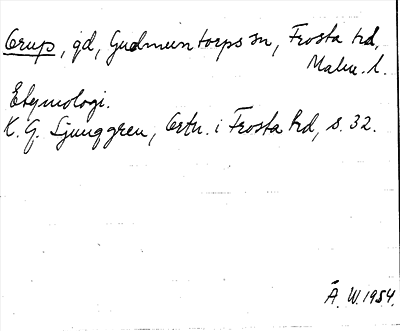 Grup, gd, Gudmuntorps sn, Frosta hd,
Malm. l.
Etymologi.
K. G. Ljunggren, Ortn. i Frosta hd, s. 32.
Å. W. 1954.